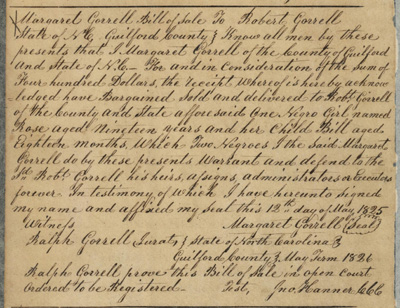 Margaret Gorrell Bill of Sale To Robert Gorrell
State of N.C. Guilford County } Know all men by these
presents that I Margaret Gorrell of the County of Guilford
and State of N.C. For and in Consideration of the Sum of
Four hundred Dollars, the receipt whereof is here by acknow
ledged have Bargained Sold and delivered to Robt. Gorrell
of the County and State aforesaid One Negro Girl named
Rose aged Nineteen years and her Child Bill aged
Eighteen months. Which Two Negroes I the Said Margaret
Gorrell do by these presents Warrant and defend to the
Sd. Robt. Gorrell his heirs, assigns, administrators or Executors
forever. In testimony of which I have hereunto signed
my name and affixed my seal this 12th day of May 1825
Witness Margaret Gorrell (Seal)
Ralph Gorrell Jurat } State of North Carolina }
Guilford County } May Term 1826
Ralph Gorrell prove this Bill of Sale in open Court
Ordered to be Registered. Test, Jno. Hanner CCC